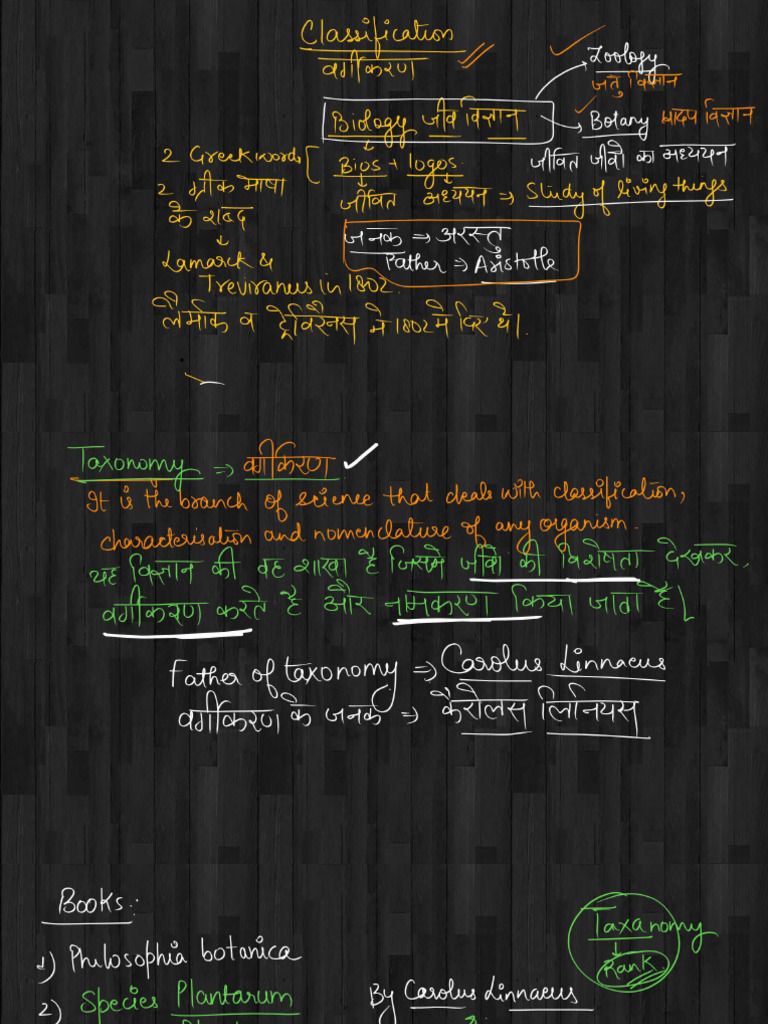 Classification
वर्गीकरण
Zoology
जंतु विज्ञान
Biology जीव विज्ञान
Botany पादप विज्ञान
2 Greek words
Bios + logos
जीवित जीवो का अध्ययन
2 ग्रीक भाषा
के शब्द
जीवित अध्ययन ⇒ Study of living things
जनक ⇒ अरस्तु
Father ⇒ Aristotle
Lamarck &
Treviranus in 1802.
लैमार्क व ट्रेविरैनस ने 1802 मे दिए थे।
Taxonomy ⇒ वर्गीकरण
It is the branch of science that deals with classification,
characterisation and nomenclature of any organism.
यह विज्ञान की वह शाखा है जिसमे जीवो की विशेषता देखकर,
वर्गीकरण करते है और नामकरण किया जाता है।
Father of taxonomy ⇒ Carolus Linnaeus
वर्गीकरण के जनक ⇒ कैरोलस लिनियस
Books:
Taxanomy
Rank
1) Philosophia botanica
2) Species Plantarum
By Carolus Linnaeus